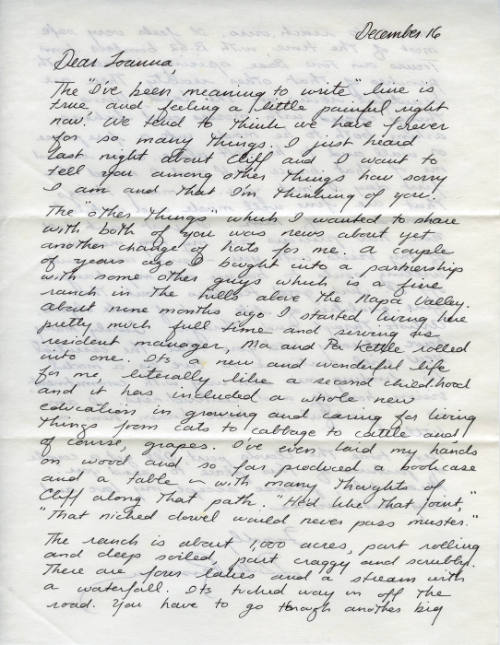 December 16
Dear Joanna,
The "I've been meaning to write" line is
true, and feeling a little painful right
now. We tend to think we have forever
for so many things. I just heard
last night about Cliff and I want to
tell you among other things how sorry
I am and that I'm thinking of you.
The "other things" which I wanted to share
with both of you was news about yet
another change of hats for me. A couple
of years ago I bought into a partnership
with some other guys which is a fine
ranch in the hills above the Napa Valley.
About nine months ago I started living here
pretty much full time and serving as
resident manager, Ma and Pa Kettle rolled
into one. Its a new and wonderful life
for me, literally like a second childhood
and it has included a whole new
education in growing and caring for living
things from cats to cabbage to cattle and,
of course, grapes. I've even laid my hands
on wood and so far produced a bookcase
and a table – with many thoughts of
Cliff along that path. "He'd like that joint,"
"That niched dowel would never pass muster."
The ranch is about 1,000 acres, part rolling
and deep soiled, part craggy and scrubbly.
There are four lakes and a stream with
a waterfall. Its tucked way in off the
road. You have to go through another big